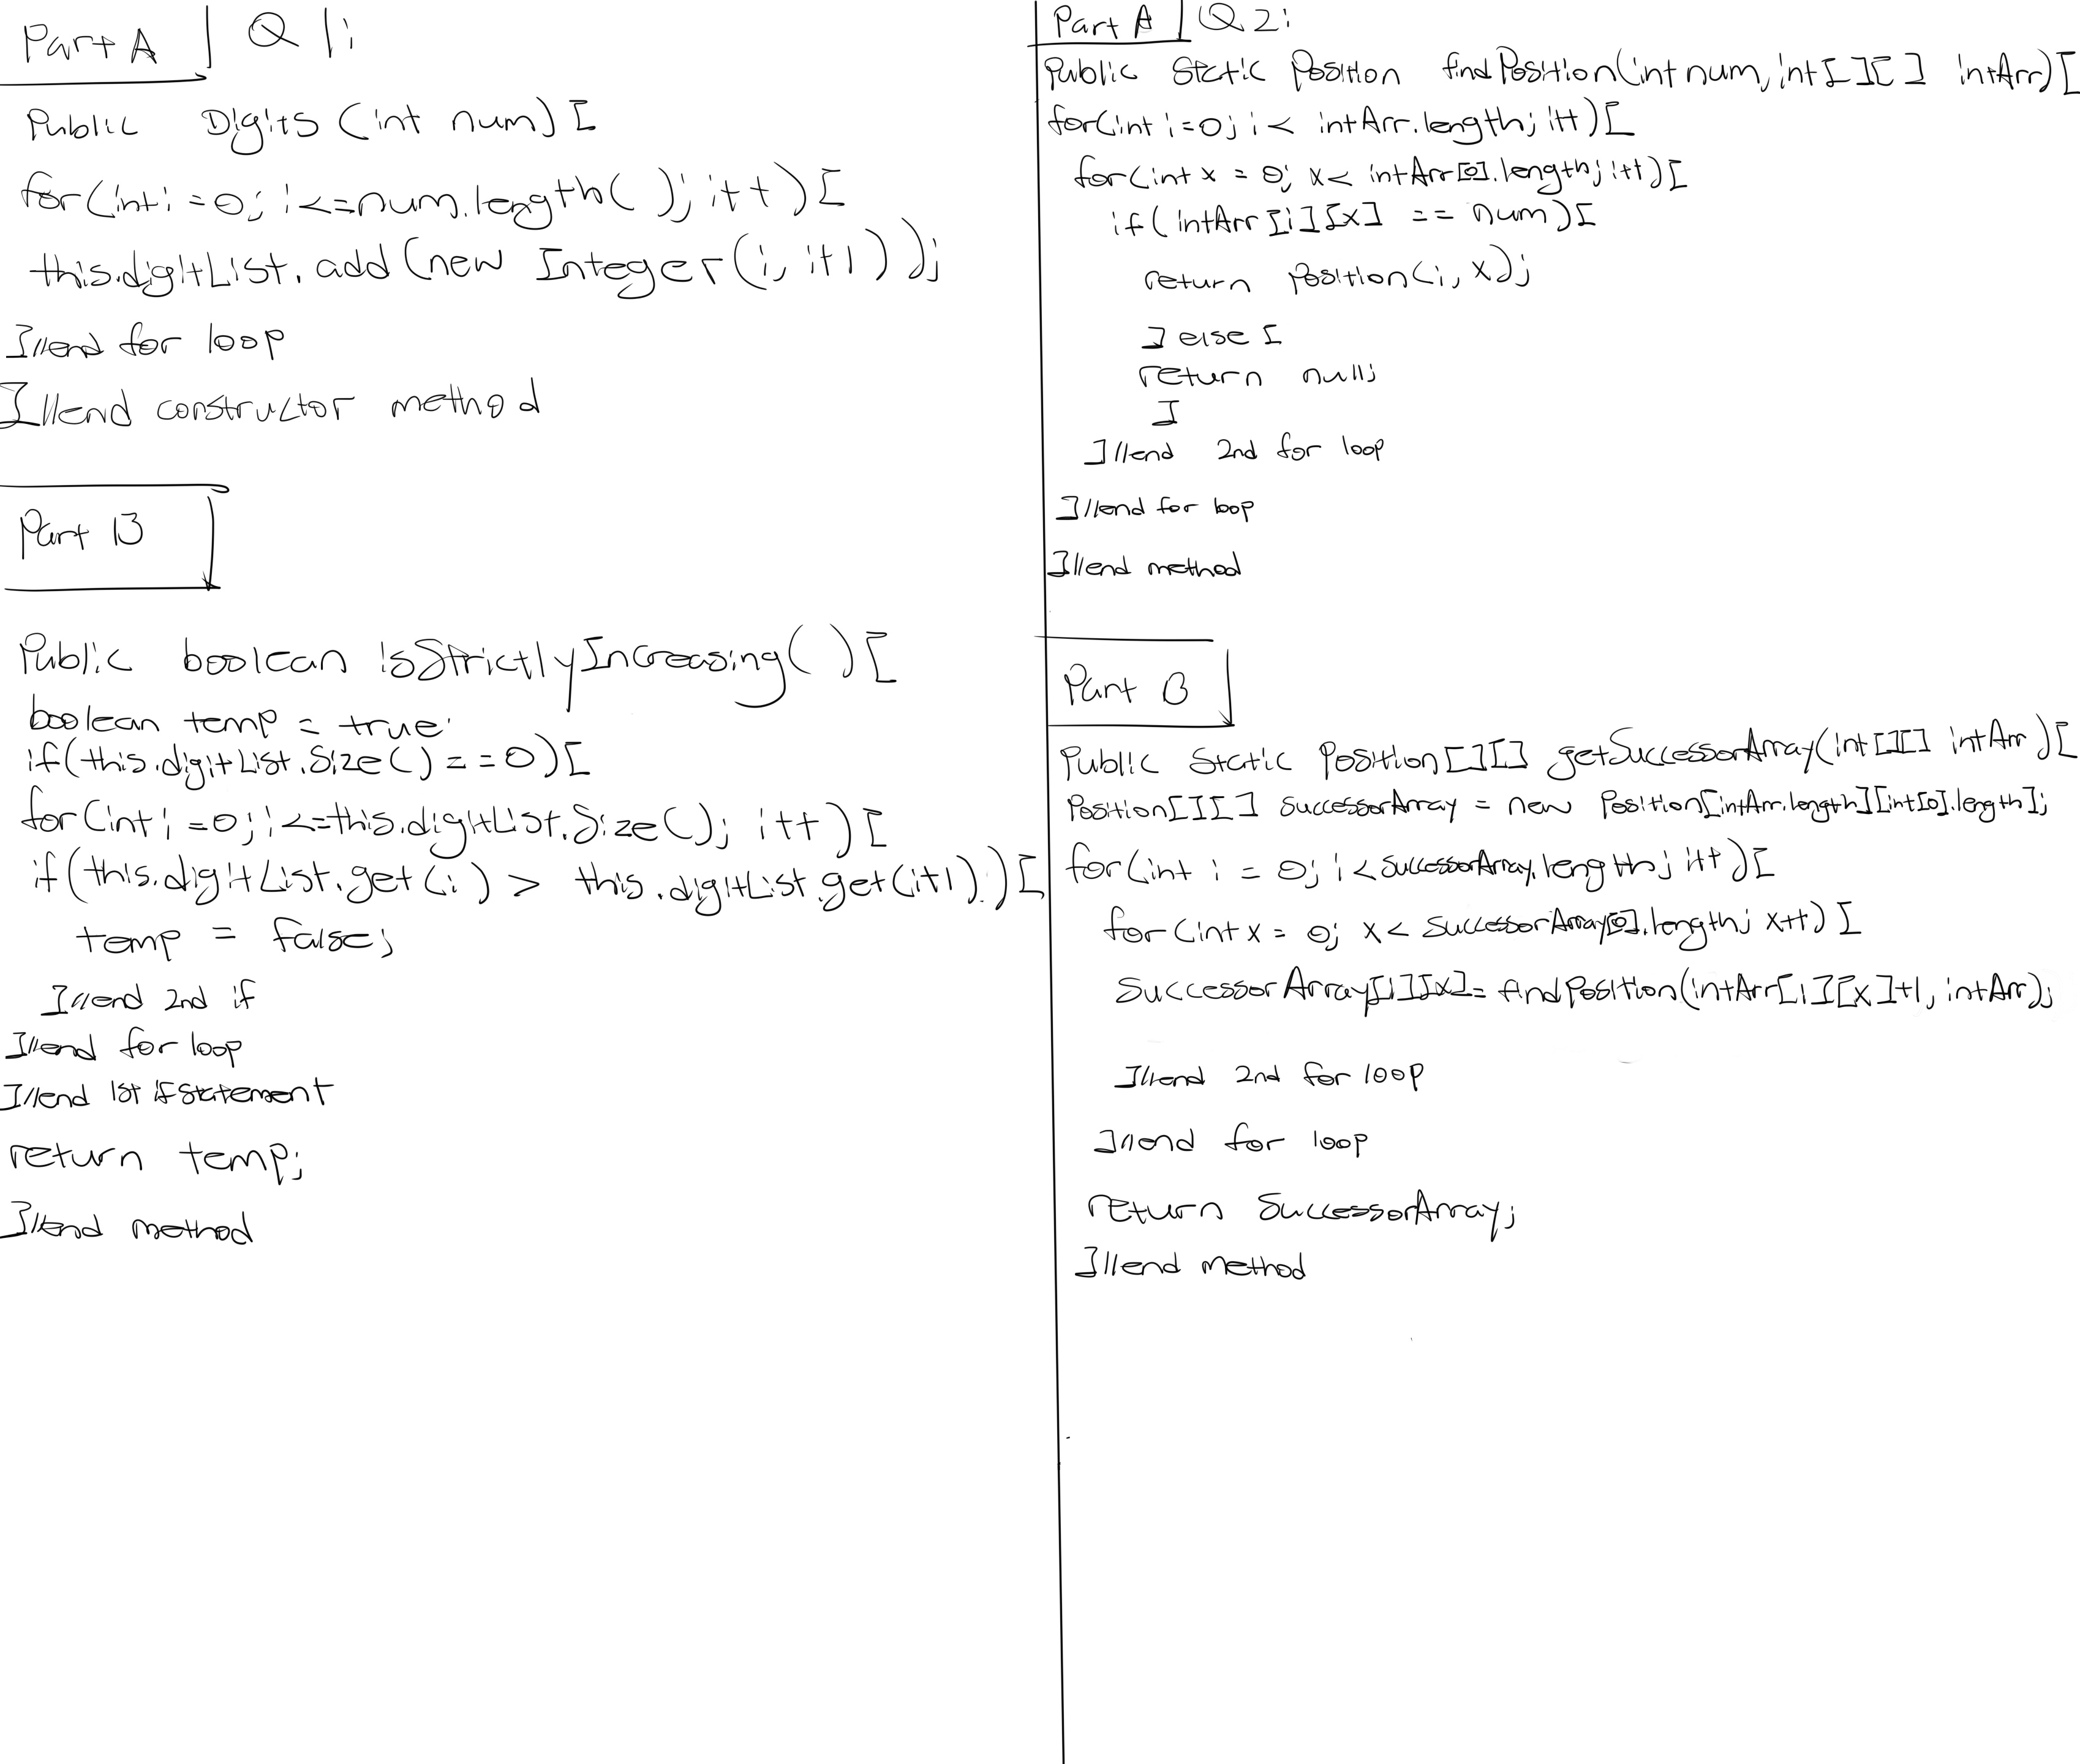 Part A Q1:
Public Digits (int num) [
for(int i = 0; i <= num.length( ); i++) [
this.digitList.add(new Integer(i, i+1));
]//end for loop
]//end constructor method
Part B
Public boolean isStrictlyIncreasing( ) [
boolean temp = true;
if(this.digitList.Size() == 0) [
for(int i = 0; i <= this.digitList.Size(); i++) [
if(this.digitList.get(i) > this.digitList.get(i+1).) [
temp = false;
]//end 2nd if
]//end for loop
]//end 1st if statement
return temp;
]//end method
Part A Q2:
Public Static Position findPosition(int num, int[][] intArr) [
for(int i=0; i < intArr.length; i++) [
for(int x = 0; x < intArr[0].length; i++) [
if(intArr[i][x] == num) [
return Position(i, x);
] else [
return null;
]
]//end 2nd for loop
]//end for loop
]//end method
Part B
Public Static Position[][] getSuccessorArray(int[][] intArr) [
Position[][] SuccessorArray = new Position[intArr.length][int[0].length];
for(int i = 0; i < SuccessorArray.length; i++) [
for(int x = 0; x < SuccessorArray[0].length; x++) [
SuccessorArray[i][x] = findPosition(intArr[i][x]+1, intArr);
]//end 2nd for loop
]//end for loop
return SuccessorArray;
]//end method